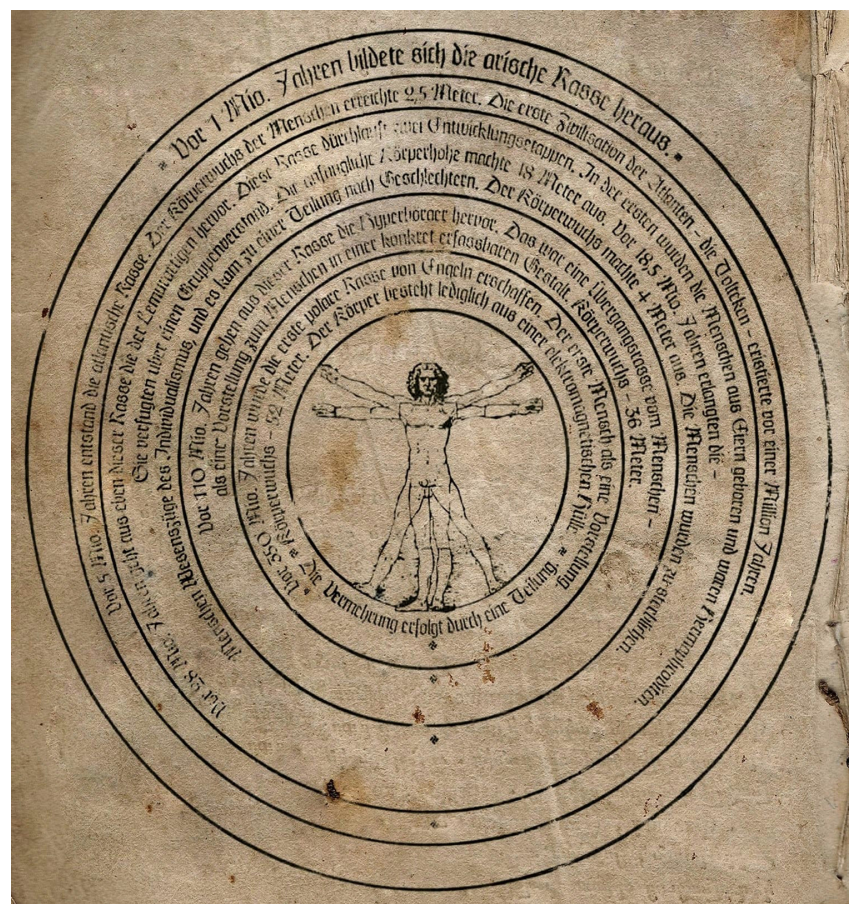 Vor 1 Mio. Jahren bildete sich die arische Rasse heraus.
Vor 5 Mio. Jahren entstand die atlantische Rasse. Der Körperwuchs der Menschen erreichte 2,5 Meter. Die erste Zivilisation der Atlanten - die Tolteken - existierte vor einer Million Jahren.
Vor 28 Mio. Jahren geht aus eben dieser Rasse die der Lemurotigen hervor. Diese Rasse durchläuft zwei Entwicklungsetappen. In der ersten wurden die Menschen aus Eiern geboren und waren
Sie verfügten über einen Gruppenverstand. Die anfängliche Körperhöhe machte 18 Meter aus. Vor 18,5 Mio. Jahren erlangten die -
Menschen Wesenszüge des Individualismus, und es kam zu einer Teilung nach Geschlechtern. Der Körperwuchs machte 4 Meter aus. Die Menschen wurden zu sterblichen.
Vor 110 Mio. Jahren gehen aus dieser Rasse die Hyperboraer hervor. Das war eine Übergangsrasse vom Menschen -
als eine Vorstellung zum Menschen in einer konkret erfassbaren Gestalt. Körperwuchs - 36 Meter.
Vor 350 Mio. Jahren wurde die erste polare Rasse von Engeln erschaffen. Der erste Mensch als eine Vorstellung.
Körperwuchs - 52 Meter. Der Körper besteht lediglich aus einer elektromagnetischen Hülle.
Die Vermehrung erfolgt durch eine Teilung.